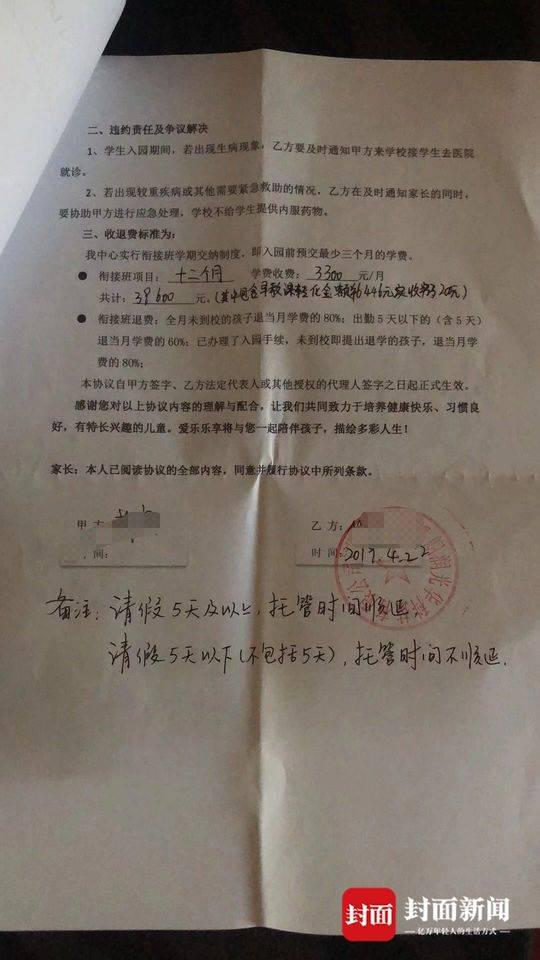 二、违约责任及争议解决
1、学生入园期间，若出现生病现象，乙方要及时通知甲方来学校接学生去医院
就诊。
2、若出现较重疾病或其他需要紧急救助的情况，乙方在及时通知家长的同时，
要协助甲方进行应急处理，学校不给学生提供内服药物。
三、收退费标准为：
我中心实行衔接班学期交纳制度，即入园前预交最少三个月的学费。
● 衔接班项目：十二个月 学费收费：3300 元/月
共计：39600 元，(其中包含早教课转化金额
● 衔接班退费：全月未到校的孩子退当月学费的 80%；出勤 5 天以下的（含 5 天）
退当月学费的 60%；已办理了入园手续，未到校即提出退学的孩子，退当月学
费的 80%；
本协议自甲方签字、乙方法定代表人或其他授权的代理人签字之日起正式生效。
感谢您对以上协议内容的理解与配合，让我们共同致力于培养健康快乐、习惯良
好，有特长兴趣的儿童。爱乐乐享将与您一起陪伴孩子，描绘多彩人生！
家长：本人已阅读协议的全部内容，同意并履行协议中所列条款。
甲方 乙方：
间： 时间：2019.4.22
备注：请假5天及以上，托管时间顺延
请假5天以下(不包括5天)，托管时间不顺延.
封面 封面新闻
亿万年轻人的生活方式